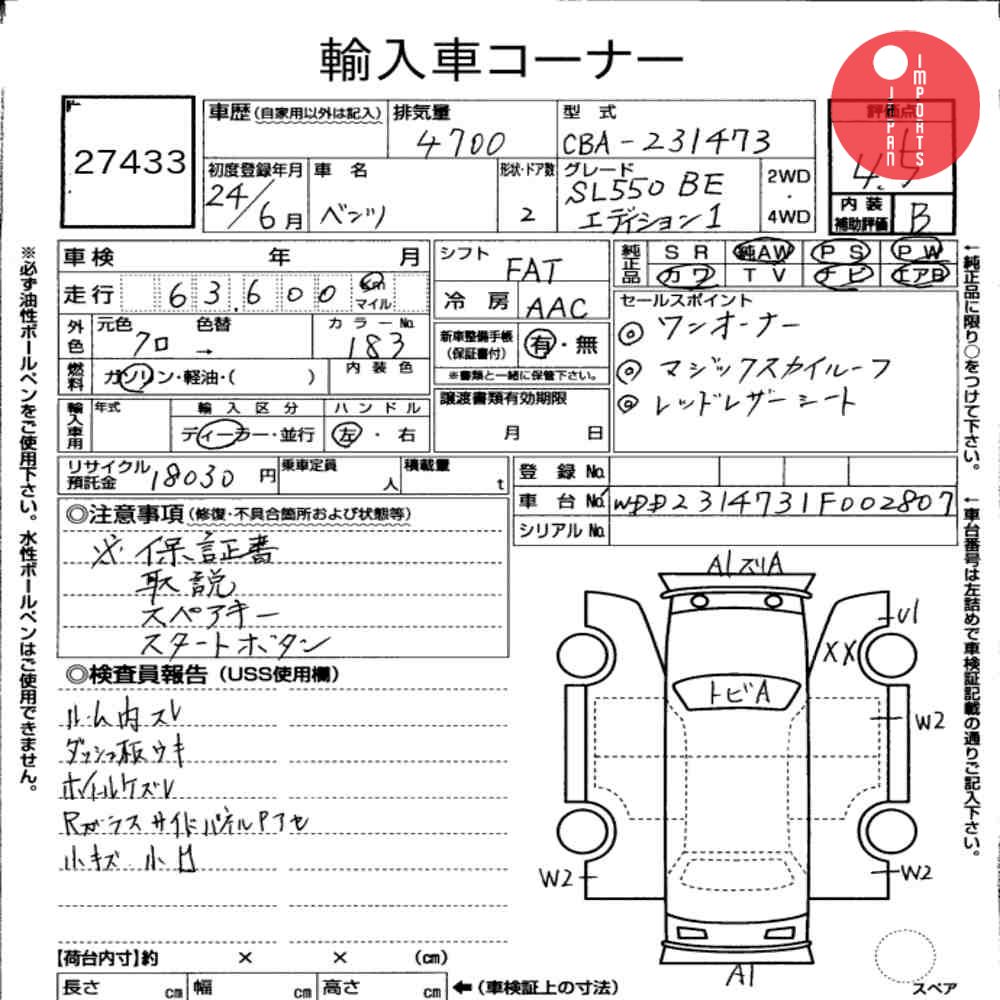 輸入車コーナー
IMPORTS
JAPAN
27433
車歴(自家用以外は記入)
排気量
4700
型 式
CBA-231473
評価点
4.5
初度登録年月
24/6月
車 名
ベンツ
形状・ドア数
2
グレード
SL550 BE
エディション1
2WD
・
4WD
内装
補助評価
B
車検 年 月
シフト
FAT
純正品
SR 純AW PS PW
カワ TV ナビ エアB
走行 63,600 Km
マイル
冷 房
AAC
セールスポイント
◎ ワンオーナー
◎ マジックスカイルーフ
◎ レッドレザーシート
外色
元色 色替
クロ →
カラーNo.
183
新車整備手帳
(保証書付)
有・無
※書類と一緒に保管下さい。
燃料
ガソリン・軽油・( )
内装色
譲渡書類有効期限
月 日
輸入車用
年式
輸入区分
ディーラー・並行
ハンドル
左・右
リサイクル
預託金
18030 円
乗車定員
人
積載量
t
登録No.
車台No.
WDD2314731F002807
シリアルNo.
◎注意事項(修復・不具合箇所および状態等)
※保証書
取説
スペアキー
スタートボタン
◎検査員報告(USS使用欄)
ルーム内スレ
ダッシュ板ウキ
ホイールケズレ
Rガラスサイドパネル Pアセ
小キズ 小凹
A1 ズリA
U1
XX
トビA
W2
W2
W2
A1
スペア
【荷台内寸】約 × × (cm)
長さ cm 幅 cm 高さ cm ←(車検証上の寸法)
※必ず油性ボールペンをご使用下さい。水性ボールペンはご使用できません。
←純正品に限り○をつけて下さい。
←車台番号は左詰めで車検証記載の通りご記入下さい。